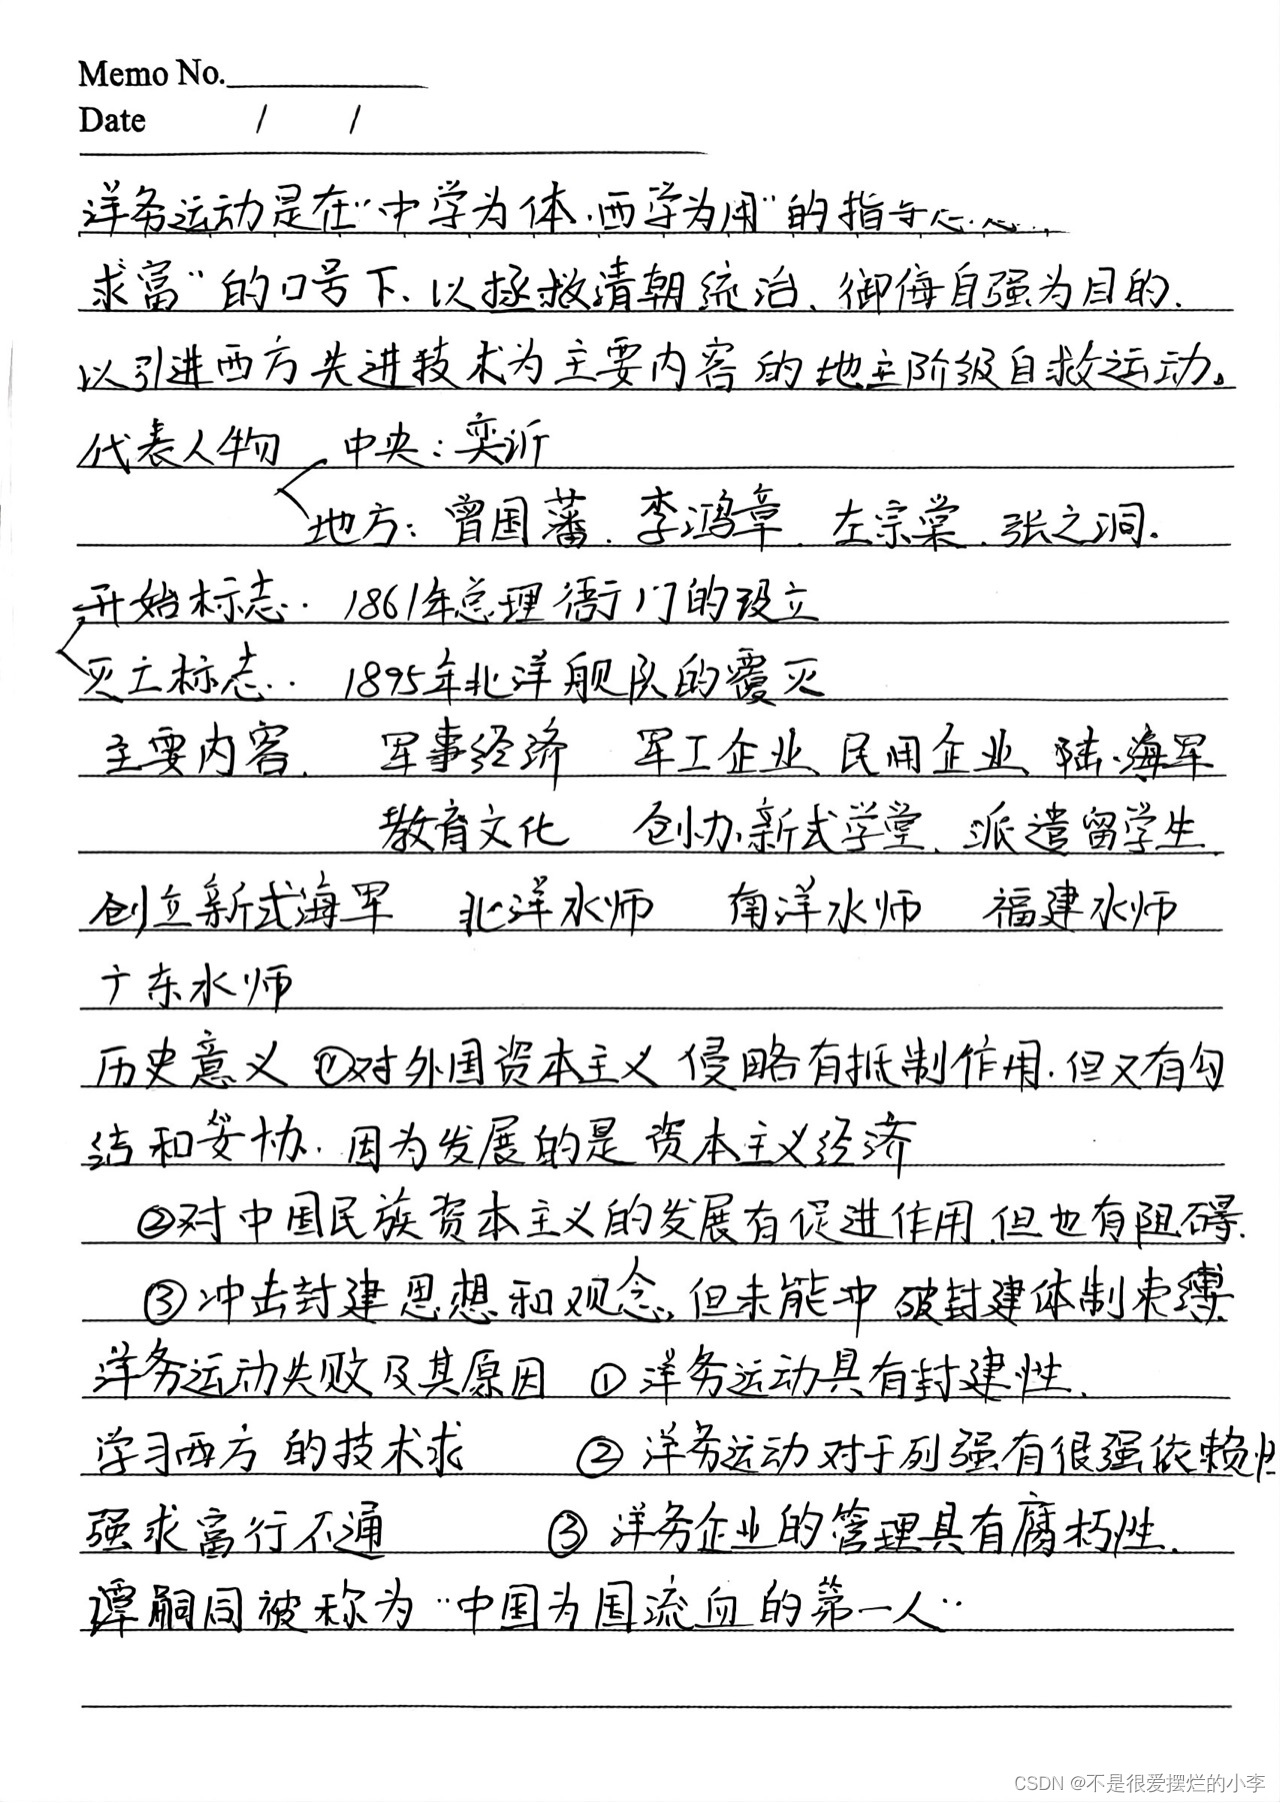 Memo No.
Date / /
洋务运动是在"中学为体、西学为用"的指导
求富"的口号下、以拯救清朝统治、御侮自强为目的、
以引进西方先进技术为主要内容的地主阶级自救运动。
代表人物 中央:奕䜣
地方:曾国藩、李鸿章、左宗棠、张之洞.
开始标志: 1861年总理衙门的设立
灭亡标志: 1895年北洋舰队的覆灭
主要内容、 军事经济 军工企业、民用企业、陆、海军
教育文化 创办新式学堂、派遣留学生、
创立新式海军 北洋水师 南洋水师 福建水师
广东水师
历史意义 ①对外国资本主义侵略有抵制作用.但又有勾
结和妥协.因为发展的是资本主义经济
②对中国民族资本主义的发展有促进作用.但也有阻碍.
③冲击封建思想和观念,但未能冲破封建体制束缚.
洋务运动失败及其原因 ①洋务运动具有封建性.
学习西方的技术求 ②洋务运动对于列强有很强依赖性
强求富行不通 ③洋务企业的管理具有腐朽性.
谭嗣同被称为"中国为国流血的第一人"
CSDN @不是很爱摆烂的小李